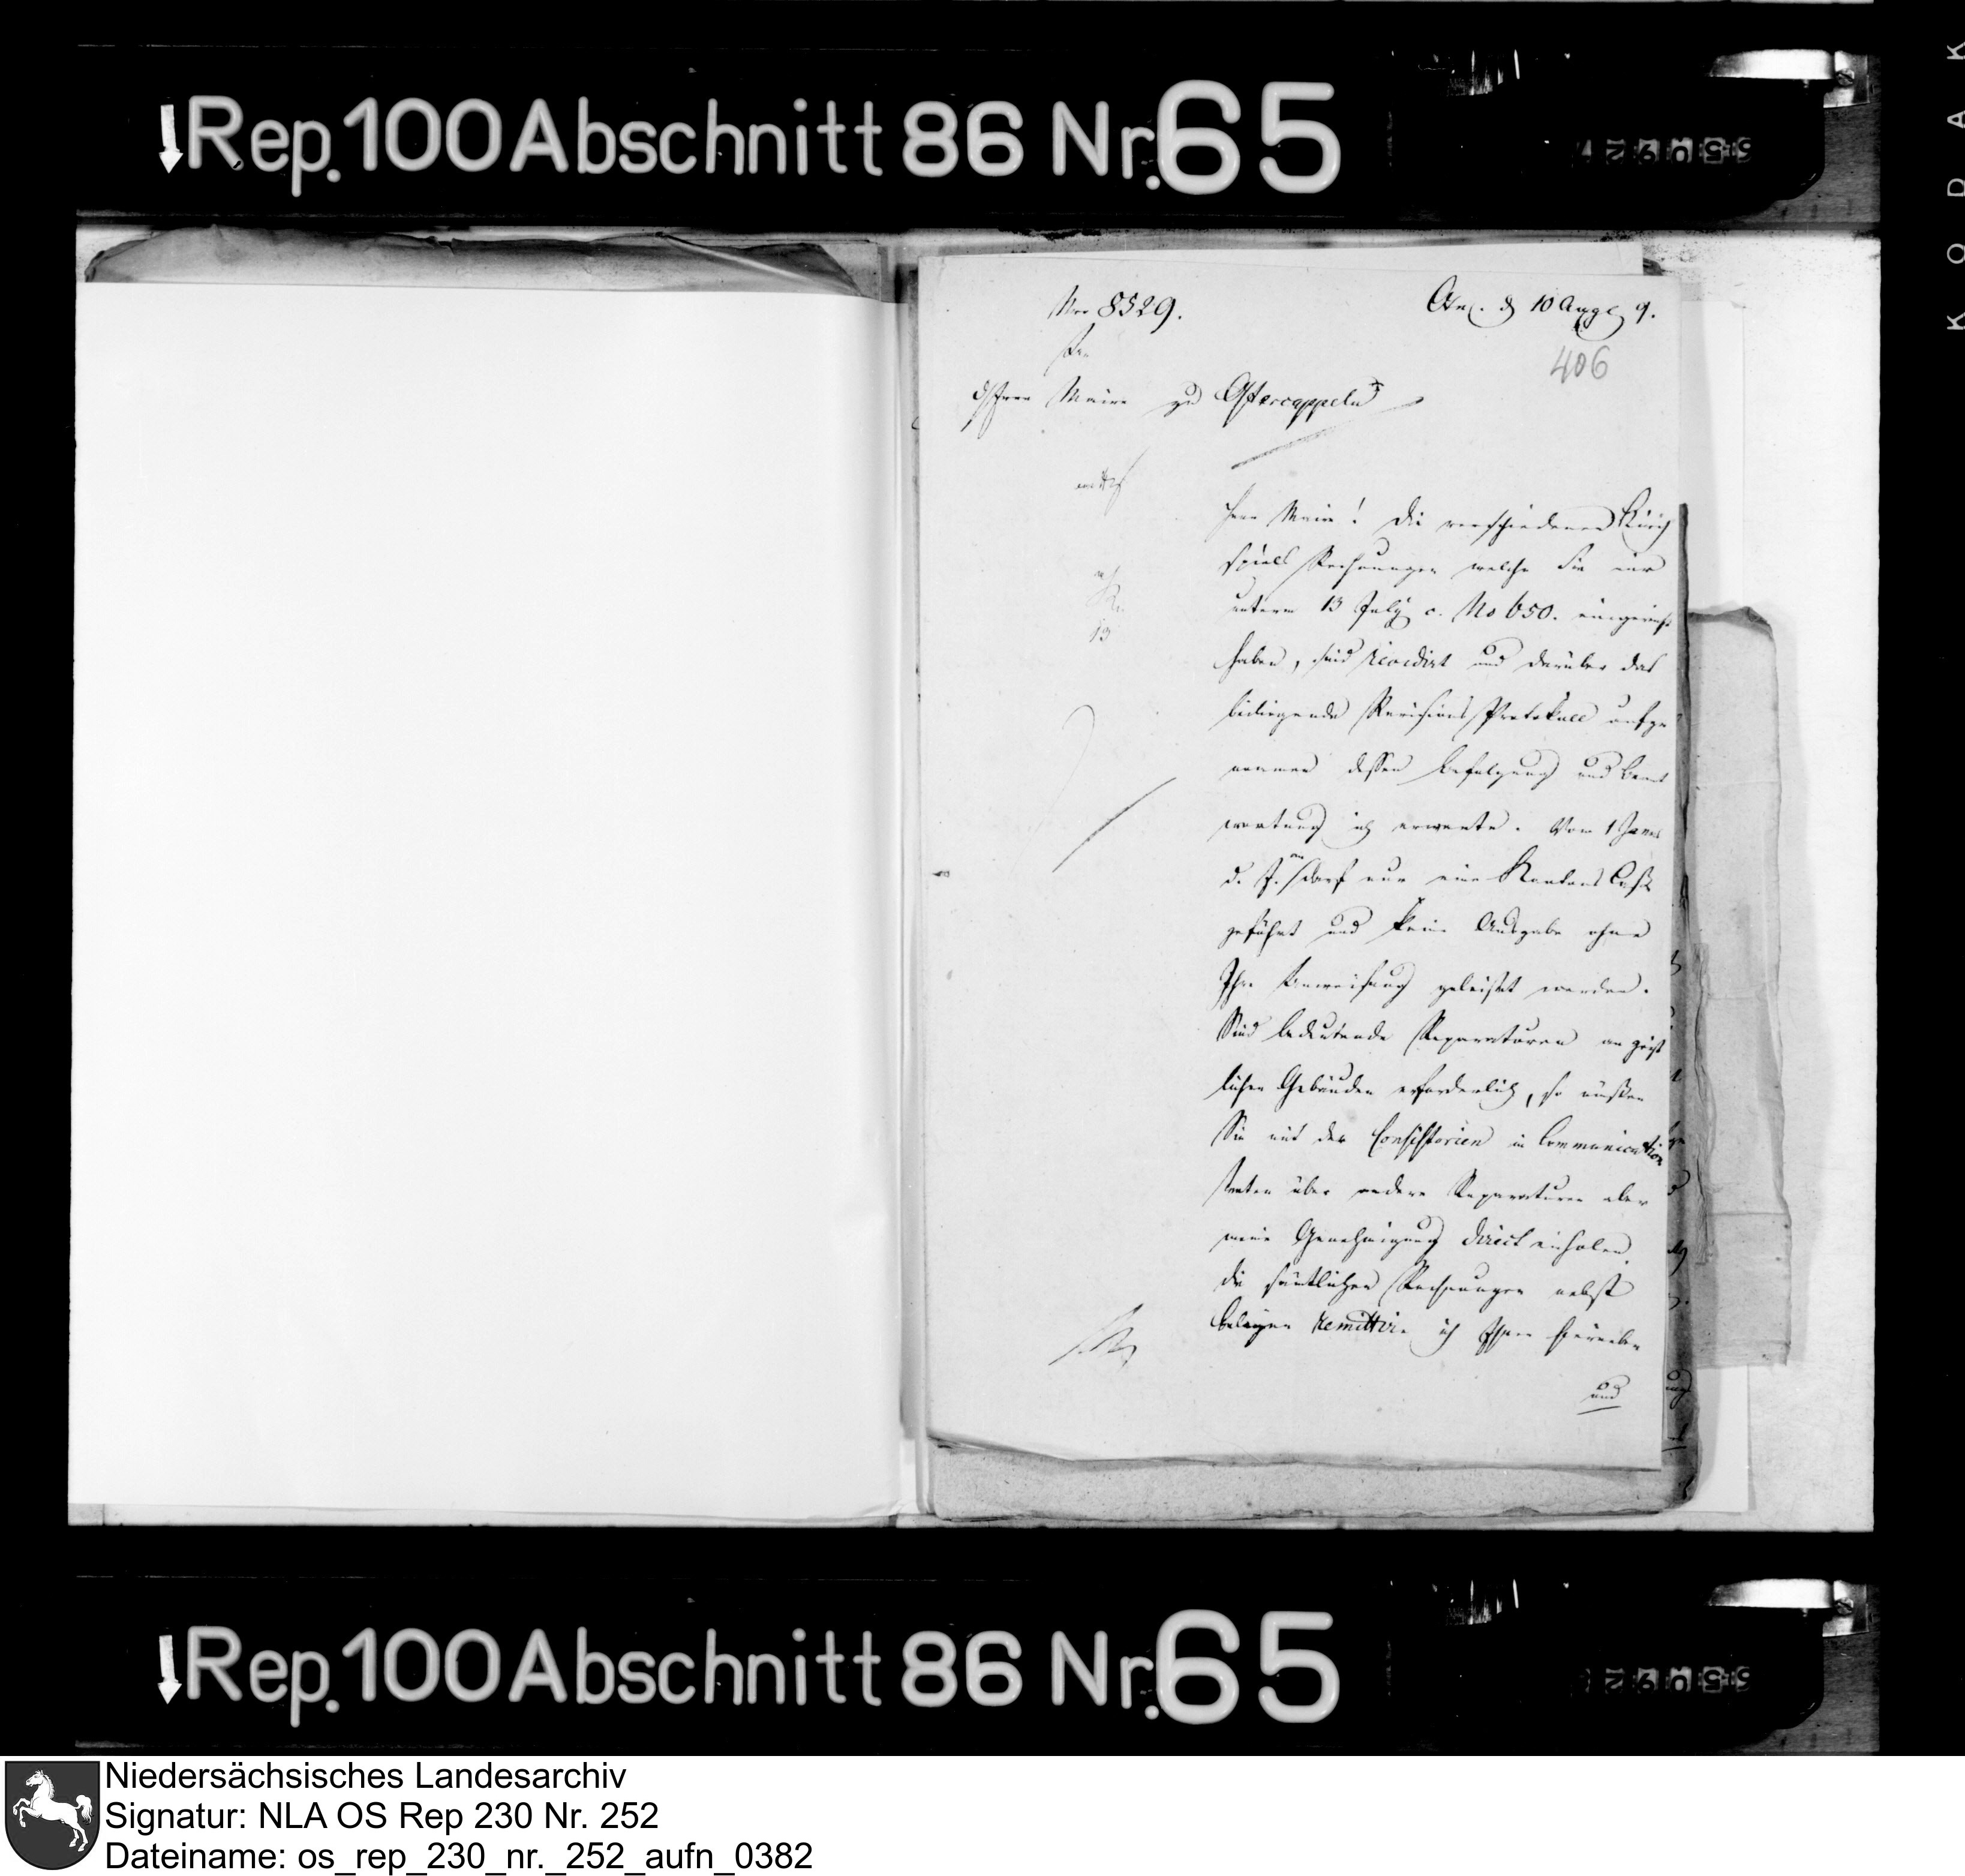 Rep. 100 Abschnitt 86 Nr. 65
KODAK
Nro 8529.
Osn. d 10 Augt 9.
406
An
d Herrn Maire zu Ostercappeln
Herr Maire! Die verschiedenen Kirch
spiels Rechnungen welche Sie mir
unterm 13 July c. No 650. eingereicht
haben, sind revidirt und darüber das
beiliegende Revisions Protokoll aufge
nommen dessen Befolgung und Beant
wortung ich erwarte. Vom 1 Janr
d. J. an darf nur eine Kantons Casse
geführt und keine Ausgabe ohne
Ihre Anweisung geleistet werden.
Sind bedeutende Reparaturen an geist
lichen Gebäuden erforderlich, so müßen
Sie mit den Consistorien in Communication
treten über andere Reparaturen aber
meine Genehmigung direct einholen.
Die sämtlichen Rechnungen nebst
Belegen remittire ich Ihnen hierneben
und
Rep. 100 Abschnitt 86 Nr. 65
Niedersächsisches Landesarchiv
Signatur: NLA OS Rep 230 Nr. 252
Dateiname: os_rep_230_nr._252_aufn_0382